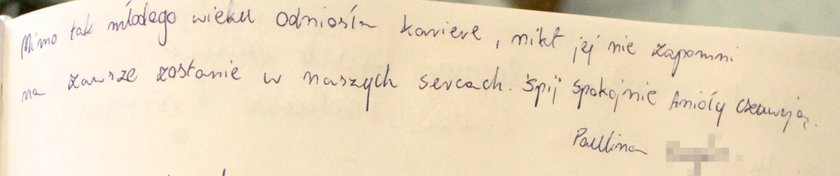 Mimo tak młodego wieku odniosła kariere, nikt jej nie zapomni
na zawsze zostanie w naszych sercach. Śpij spokojnie Anioły czuwają.
Paulina